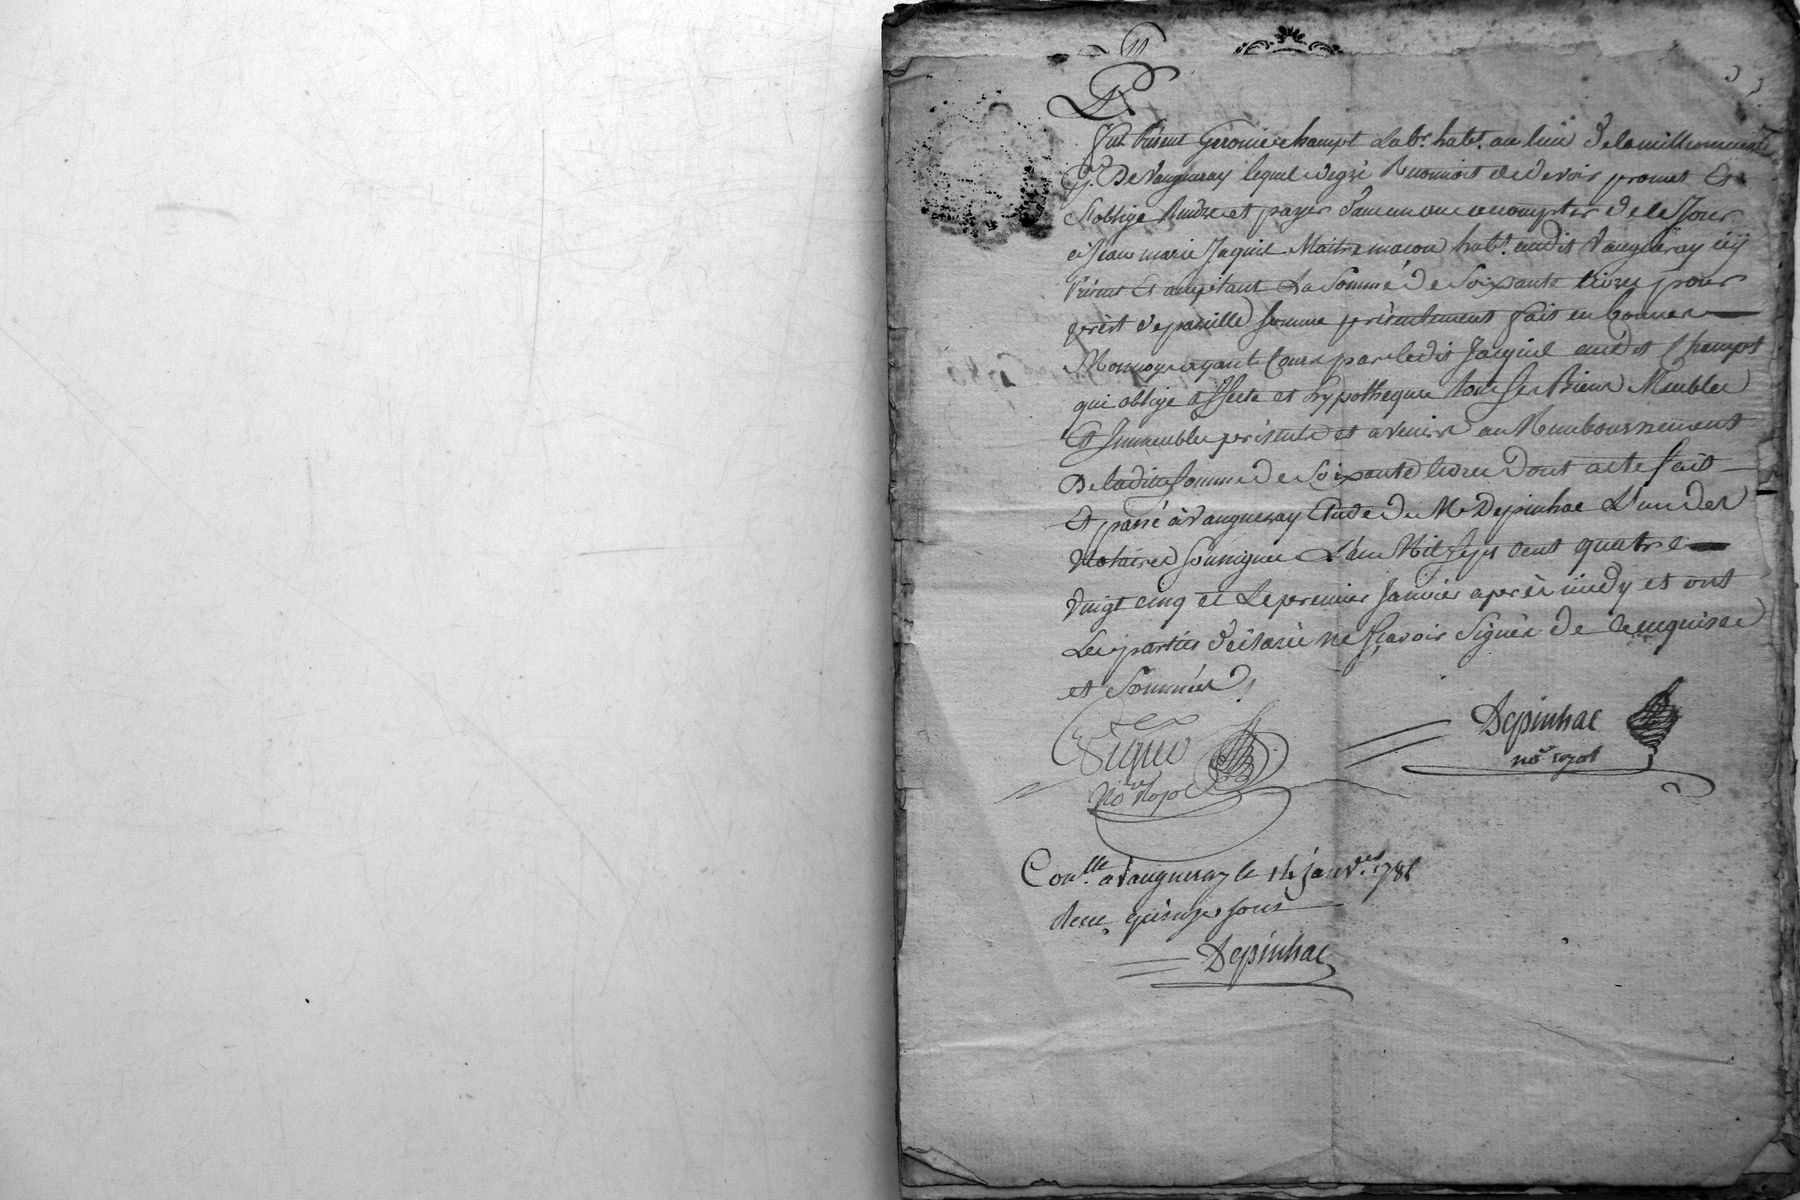 fut present Geronie champt Labr. habt. au lieu de la
psse. De Vaugneray lequel degré Reconnoit de devoir promet Et
S'oblige Rendre et payer dans un an a compter de ce Jour
a Jean marie Jaquiel Maitre macon habt. audit Vaugneray icy
Présent Et acceptant La Somme De Soixante Livres pour
prêt de pareille Somme présentement fait en bonne
Monnoye ayant Cours par ledit Jaquiel audit Champt
qui oblige affecte et hypotheque tous Ses Biens Meubles
Et Immeubles présents et avenir au Remboursement
De ladite Somme De Soixante livres Dont acte fait
Et passé à Vaugneray Etude De Me Depinhac L'un des
Notaires Soussignes L'an Mil Sept cent quatre
Vingt cinq et Le premier Janvier après midy et ont
Les parties déclaré ne Sçavoir Signer De ce enquises
et Sommées
Depinhac
nore royal
Nore Royal
Conllé. a Vaugneray le 14 janver. 178
Recu quinze sous
Depinhac